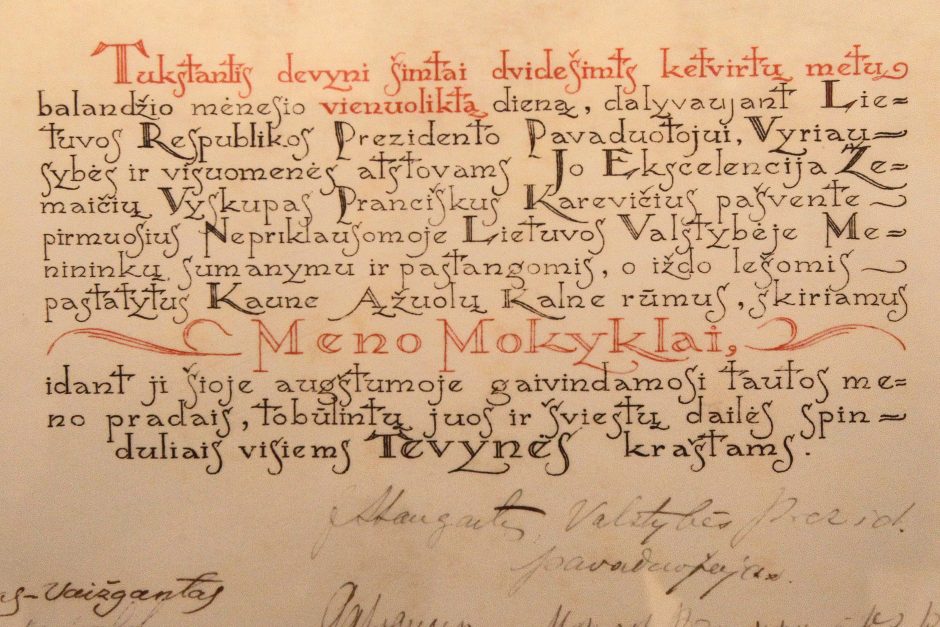 Tukstantis devyni šimtai dvidešimts ketvirtų metų
balandžio mėnesio vienuoliktą dieną, dalyvaujant Lie=
tuvos Respublikos Prezidento Pavaduotojui, Vyriau~
sybės ir visuomenės atstovams Jo Ekscelencija Že=
maičių Vyskupas Pranciškus Karevičius pašvente ~
pirmuosius Nepriklausomoje Lietuvos Valstybėje Me=
nininkų sumanymu ir pastangomis, o iždo lešomis ~
pastatytus Kaune Ąžuolų Kalne rūmus, skiriamus
Meno Mokyklai,
idant ji šioje augštumoje gaivindamosi tautos me=
no pradais, tobūlintų juos ir šviestų dailės spin=
duliais visiems Tėvynės kraštams.
Staugaitis, Valstybės Prezid.
pavaduotojas.
as-Vaižgantas